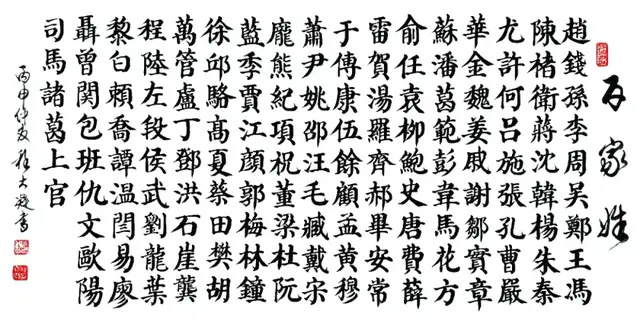 百家姓
趙錢孫李周吳鄭王馮
陳褚衛蔣沈韓楊朱秦
尤許何呂施張孔曹嚴
華金魏姜戚謝鄒竇章
蘇潘葛範彭韋馬花方
俞任袁柳鮑史唐費薛
雷賀湯羅齊郝畢安常
于傅康伍餘顧孟黄穆
蕭尹姚邵汪毛臧戴宋
龐熊紀項祝董梁杜阮
藍季賈江顔郭梅林鐘
徐邱駱髙夏蔡田樊胡
萬管盧丁鄧洪石崖龔
程陸左段侯武劉龍葉
黎白賴喬譚温閆易廖
聶曾関包班仇文歐陽
司馬諸葛上官
丙申仲夏書